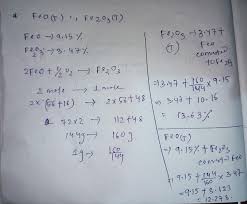 FeO(T) : , Fe2O3(T)
FeO → 9.15%
Fe2O3 → 3.47%
2FeO + 1/2 O2 → Fe2O3
2 mole → 1 mole
2×(56+16) → 2×56+48
72×2 → 112+48
144g → 160g
1g → 160/144
Fe2O3 → 3.47 +
(T) FeO
converted
to Fe2O3
= 3.47 + 160/144 × 9.15
= 3.47 + 10.16
= 13.63%
FeO(T)
→ 9.15% + Fe2O3
converted
FeO
= 9.15 + 144/160 × 3.47
= 9.15 + 3.123
= 12.273